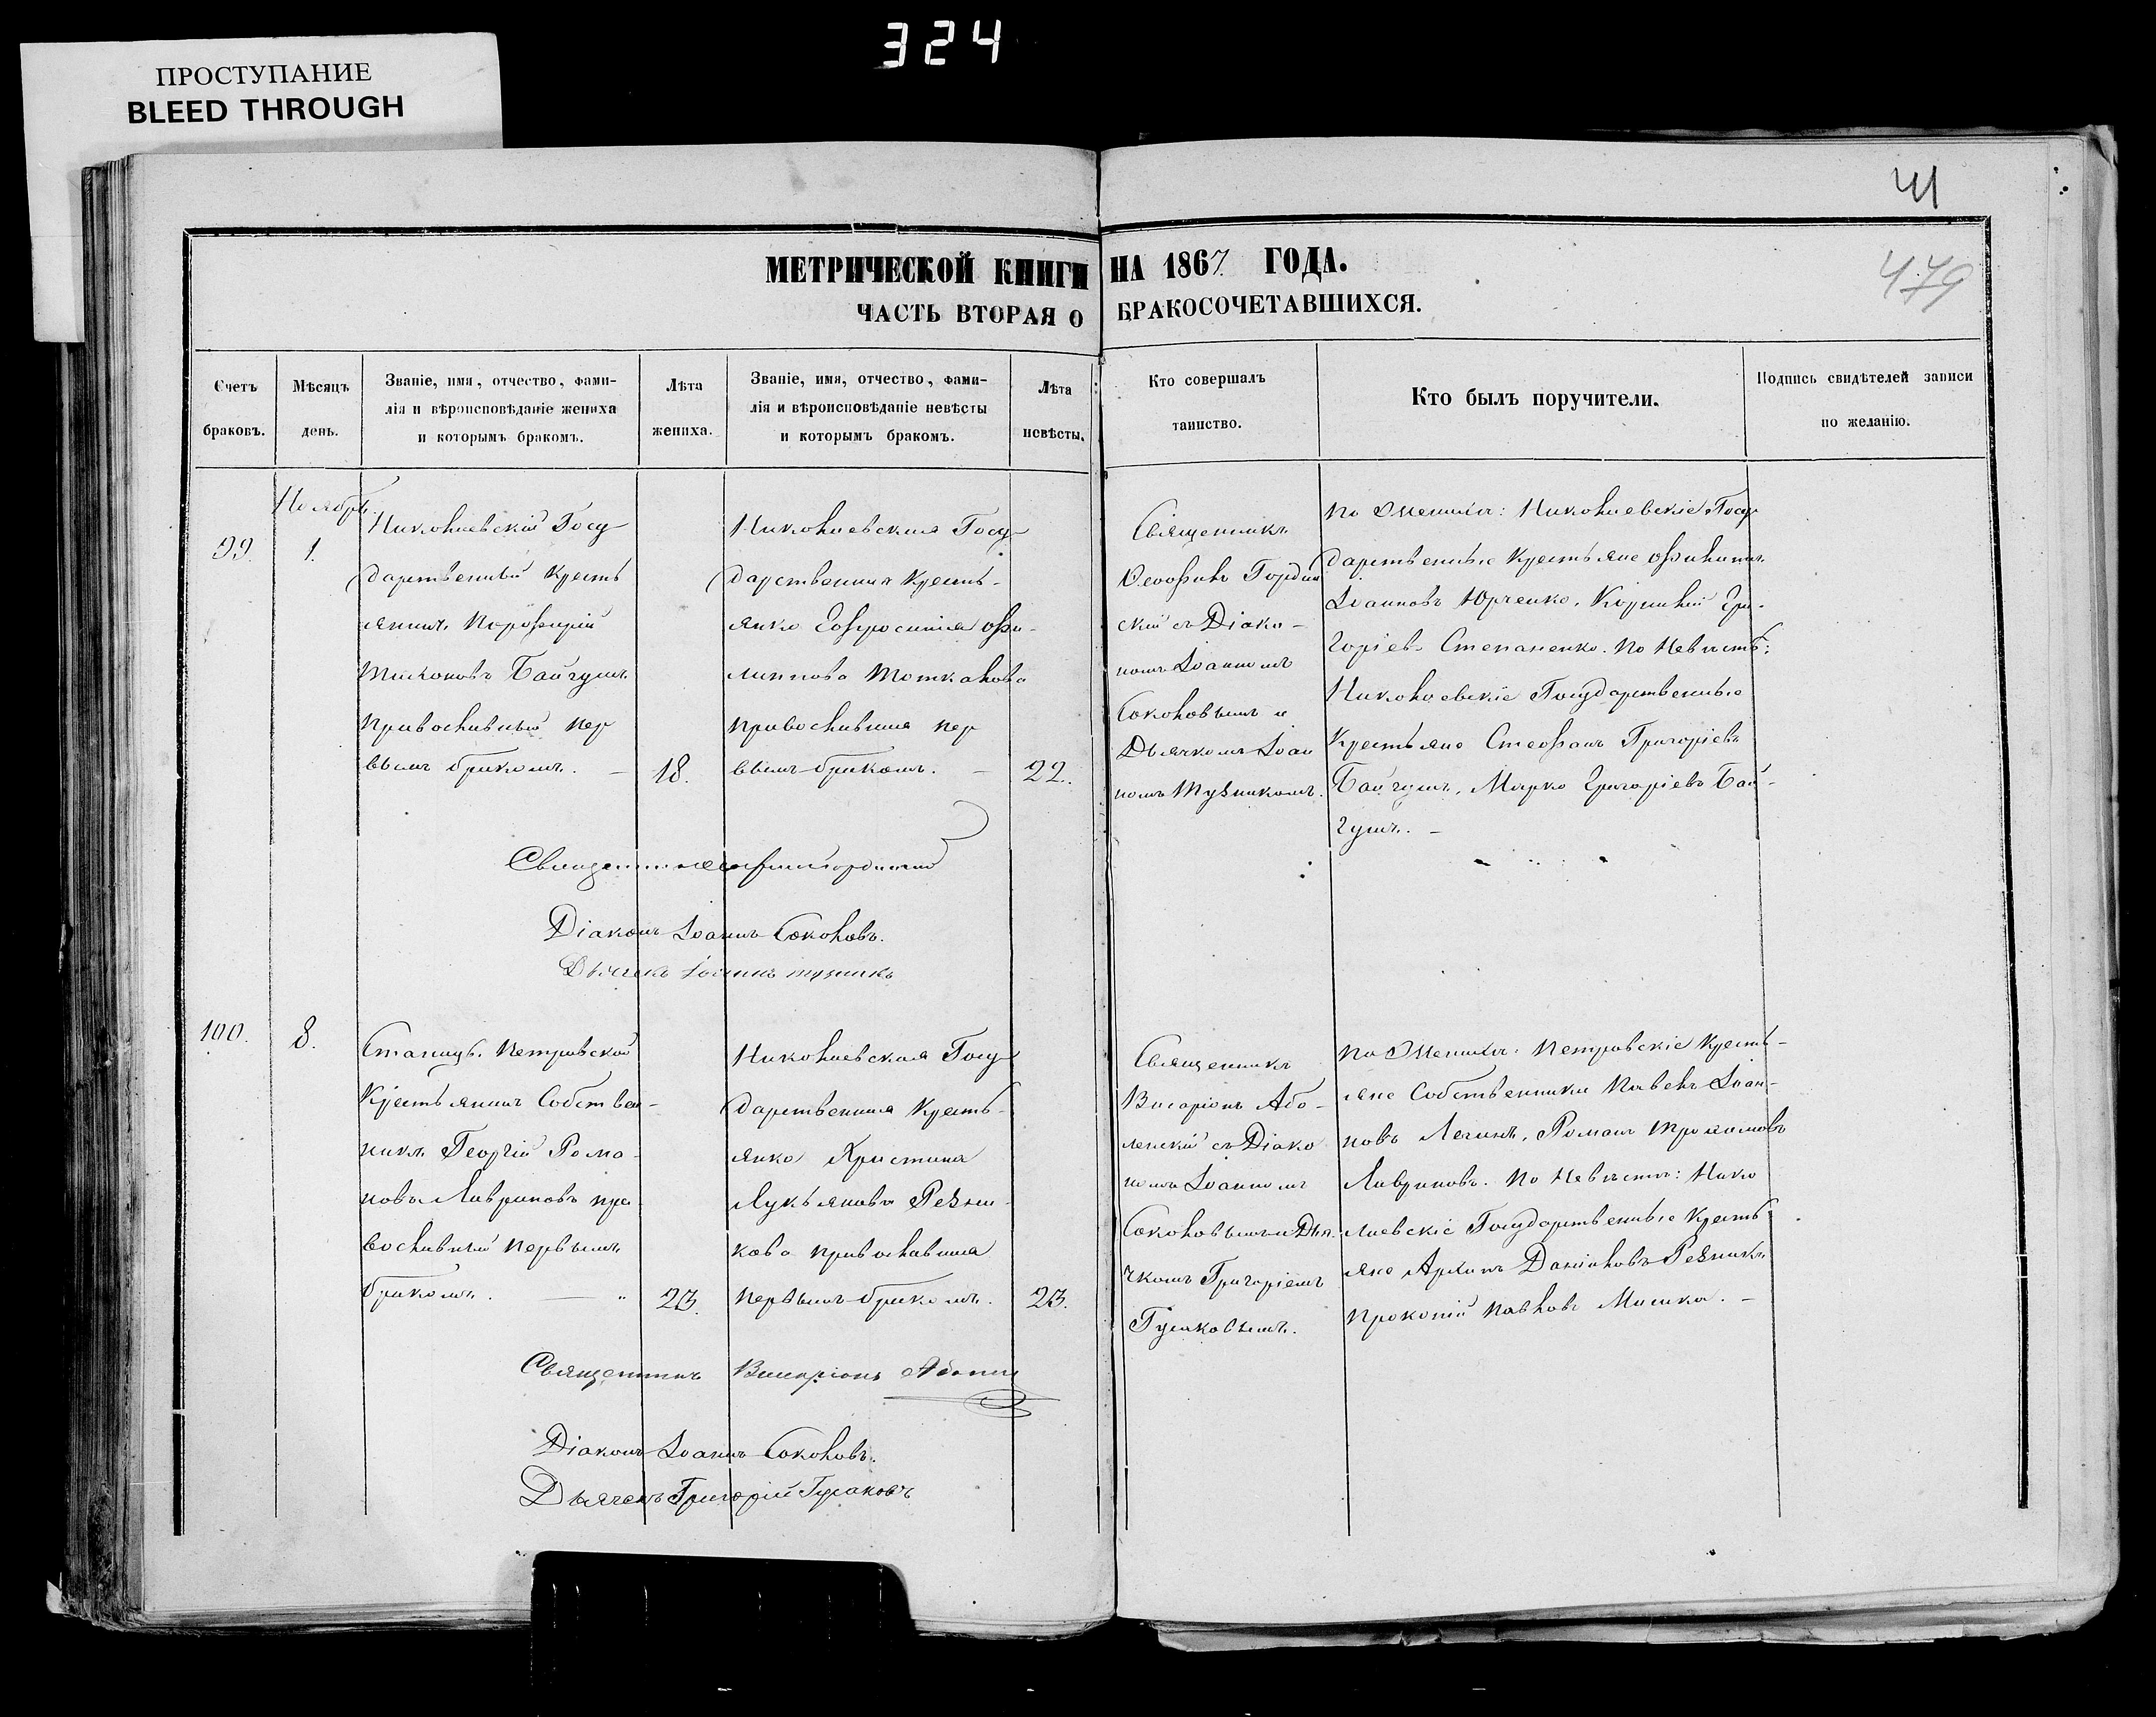 324
ПРОСТУПАНИЕ
BLEED THROUGH
41
479
МЕТРИЧЕСКОЙ КНИГИ НА 1867 ГОДА.
ЧАСТЬ ВТОРАЯ О БРАКОСОЧЕТАВШИХСЯ.
Счетъ
браковъ.
Мѣсяцъ
день.
Званіе, имя, отчество, фами-
лія и вѣроисповѣданіе жениха
и которымъ бракомъ.
Лѣта
жениха.
Званіе, имя, отчество, фами-
лія и вѣроисповѣданіе невѣсты
и которымъ бракомъ.
Лѣта
невѣсты.
Кто совершалъ
таинство.
Кто былъ поручители.
Подпись свидѣтелей записи
по желанію.
99.
Ноября
1.
Николаевскій Госу
дарственный Кресть
янинъ Порфирій
Тихоновъ Байгушъ
православный пер
вымъ бракомъ. —
18.
Николаевская Госу-
дарственная Кресть-
янка Евфросинія Фи-
липпова Толкакова
православная пер
вымъ бракомъ. —
22.
Священникъ
Ѳеофилъ Гордин
скій съ Діако-
номъ Іоанномъ
Соколовымъ и
Дьячкомъ Іоан
номъ Тузникомъ.
По Женихѣ: Николаевскіе Госу
дарственные Крестьяне Филиппъ
Іоанновъ Юрченко, Корнилій Гри-
горіевъ Степаненко. По Невѣстѣ:
Николаевскіе Государственные
Крестьяне Стефанъ Григоріевъ
Байгушъ, Марко Григоріевъ Бай-
гушъ. —
Священникъ
Діаконъ Іоаннъ Соколовъ.
Дьячекъ Іоаннъ Тузникъ
100.
8.
Станицы Петровской
Крестьянинъ Собствен-
никъ Георгій Рома-
новъ Лавриновъ пра
вославный первымъ
бракомъ. —
23.
Николаевская Госу
дарственная Кресть-
янка Христина
Лукьянова Резни-
кова православная
первымъ бракомъ.
23.
Священникъ
Висаріонъ Або-
ленскій съ Діако
номъ Іоанномъ
Соколовымъ и Дья-
чкомъ Григоріемъ
Гусаковымъ.
По Женихѣ: Петровскіе Кресть-
яне Собственники Павелъ Іоан-
новъ Романъ Трофимовъ
Лавриновъ. По Невѣстѣ: Нико
лаевскіе Государственные Кресть
яне Архипъ Даниловъ Резникъ
Прокопій Павловъ Мишка. —
Священникъ Висаріонъ
Діаконъ Іоаннъ Соколовъ.
Дьячекъ Григорій Гусаковъ